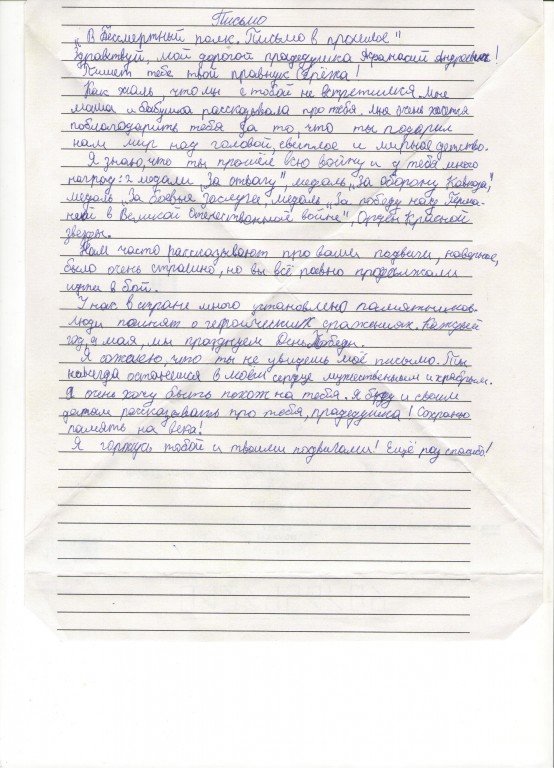 Письмо
"В Бессмертный полк. Письмо в прошлое"
Здравствуй, мой дорогой прадедушка Афанасий Андреевич!
Пишет тебе твой правнук Серёжа!
Как жаль, что мы с тобой не встретились. Мне
мама и бабушка рассказывала про тебя. Мне очень хочется
поблагодарить тебя за то, что ты подарил
нам мир над головой, светлое и мирное детство.
Я знаю, что ты прошел всю войну и у тебя много
наград: 2 медали "За отвагу", медаль "За оборону Кавказа",
медаль "За боевые заслуги", медаль "За победу над Герма-
нией в Великой Отечественной войне", Орден Красной
звезды.
Нам часто рассказывают про ваши подвиги, наверное,
было очень страшно, но вы всё равно продолжали
идти в бой.
У нас в стране много установлено памятников.
Люди помнят о героических сражениях. Каждый
год, 9 мая, мы празднуем День Победы.
Я сожалею, что ты не увидешь моё письмо. Ты
навсегда останешся в моём сердце мужественным и храбрым.
Я очень хочу быть похож на тебя. Я буду и своим
детям рассказывать про тебя, прадедушка! Сохраню
память на века!
Я горжусь тобой и твоими подвигами! Ещё раз спасибо!